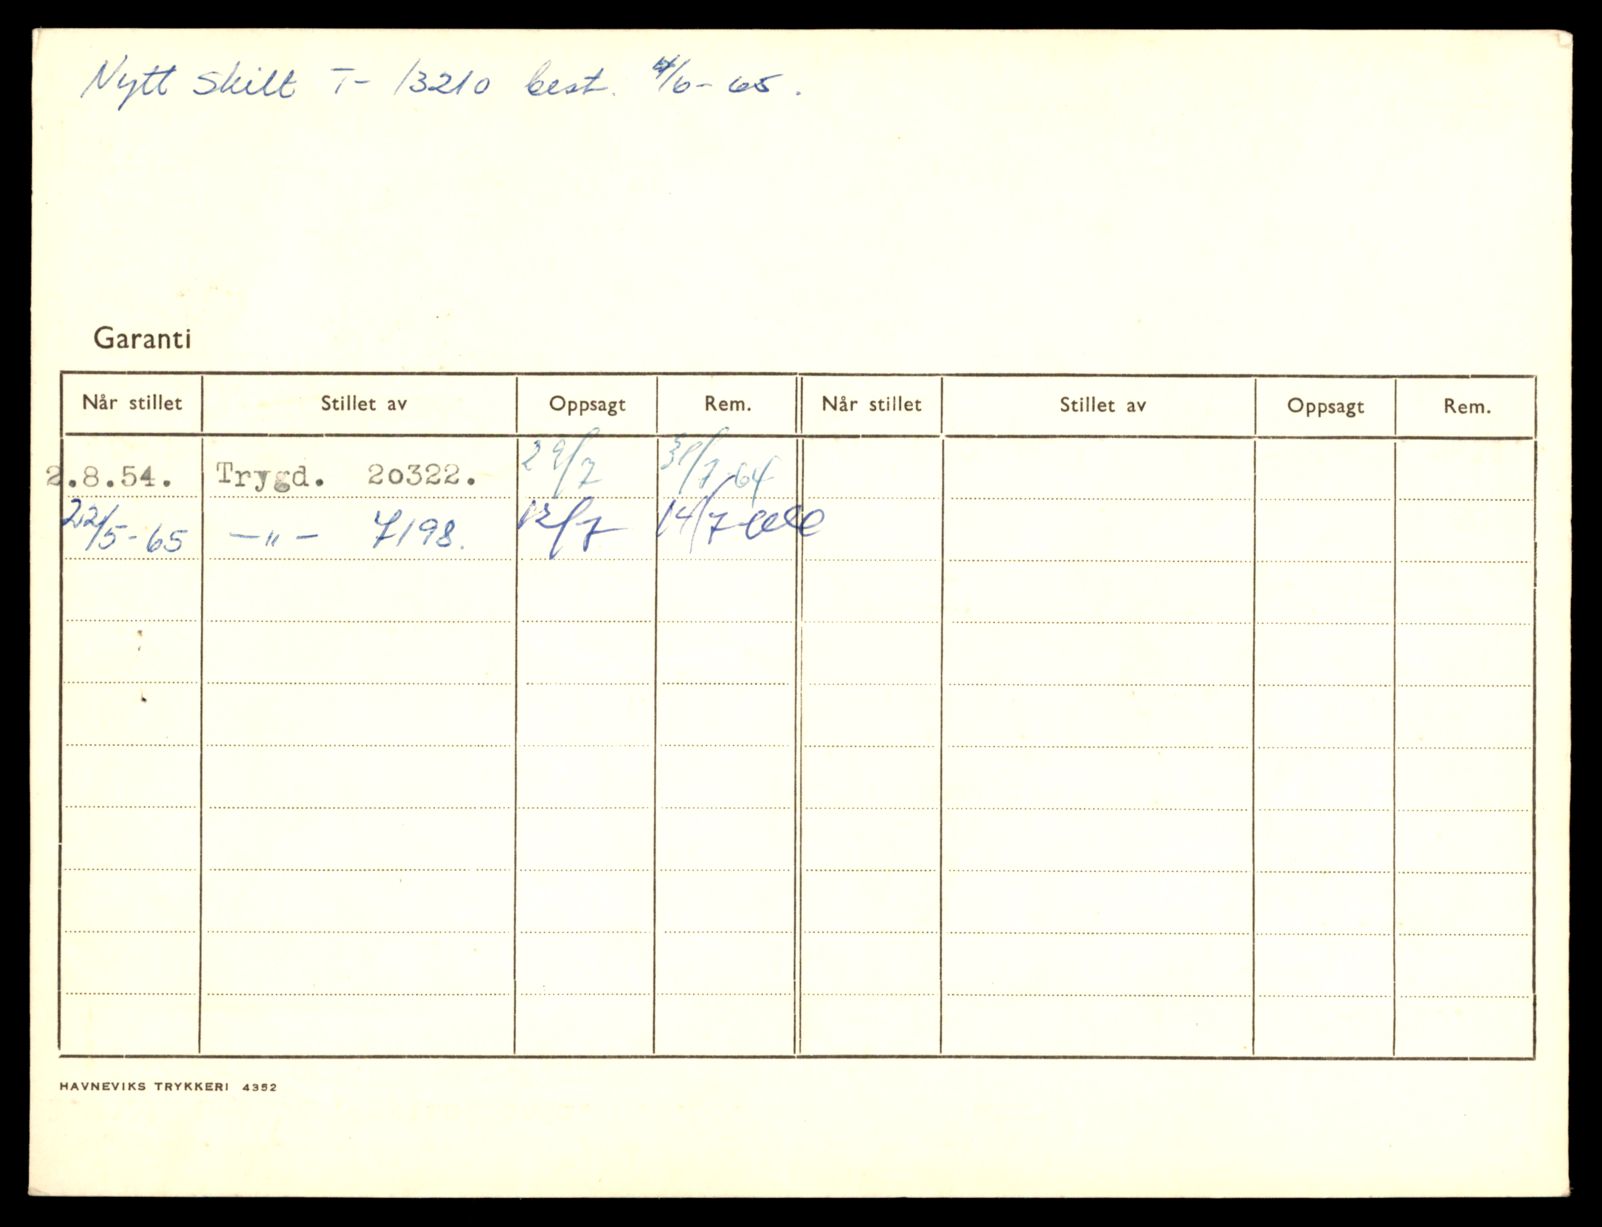 Nytt skilt T- 13210 best. 4/6- 65.
Garanti
Når stillet Stillet av Oppsagt Rem. Når stillet Stillet av Oppsagt Rem.
2.8.54. Trygd. 20322. 29/7 31/7-64
22/5-65 -"- 7198. 12/7 14/7-
HAVNEVIKS TRYKKERI 4352